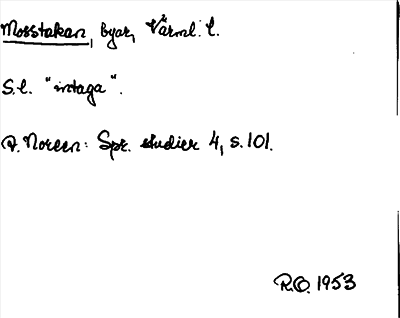 Mosstakan, byar, Värml. l.
S.l. "intaga".
A. Noreen: Spr. studier 4, s. 101.
R.O. 1953